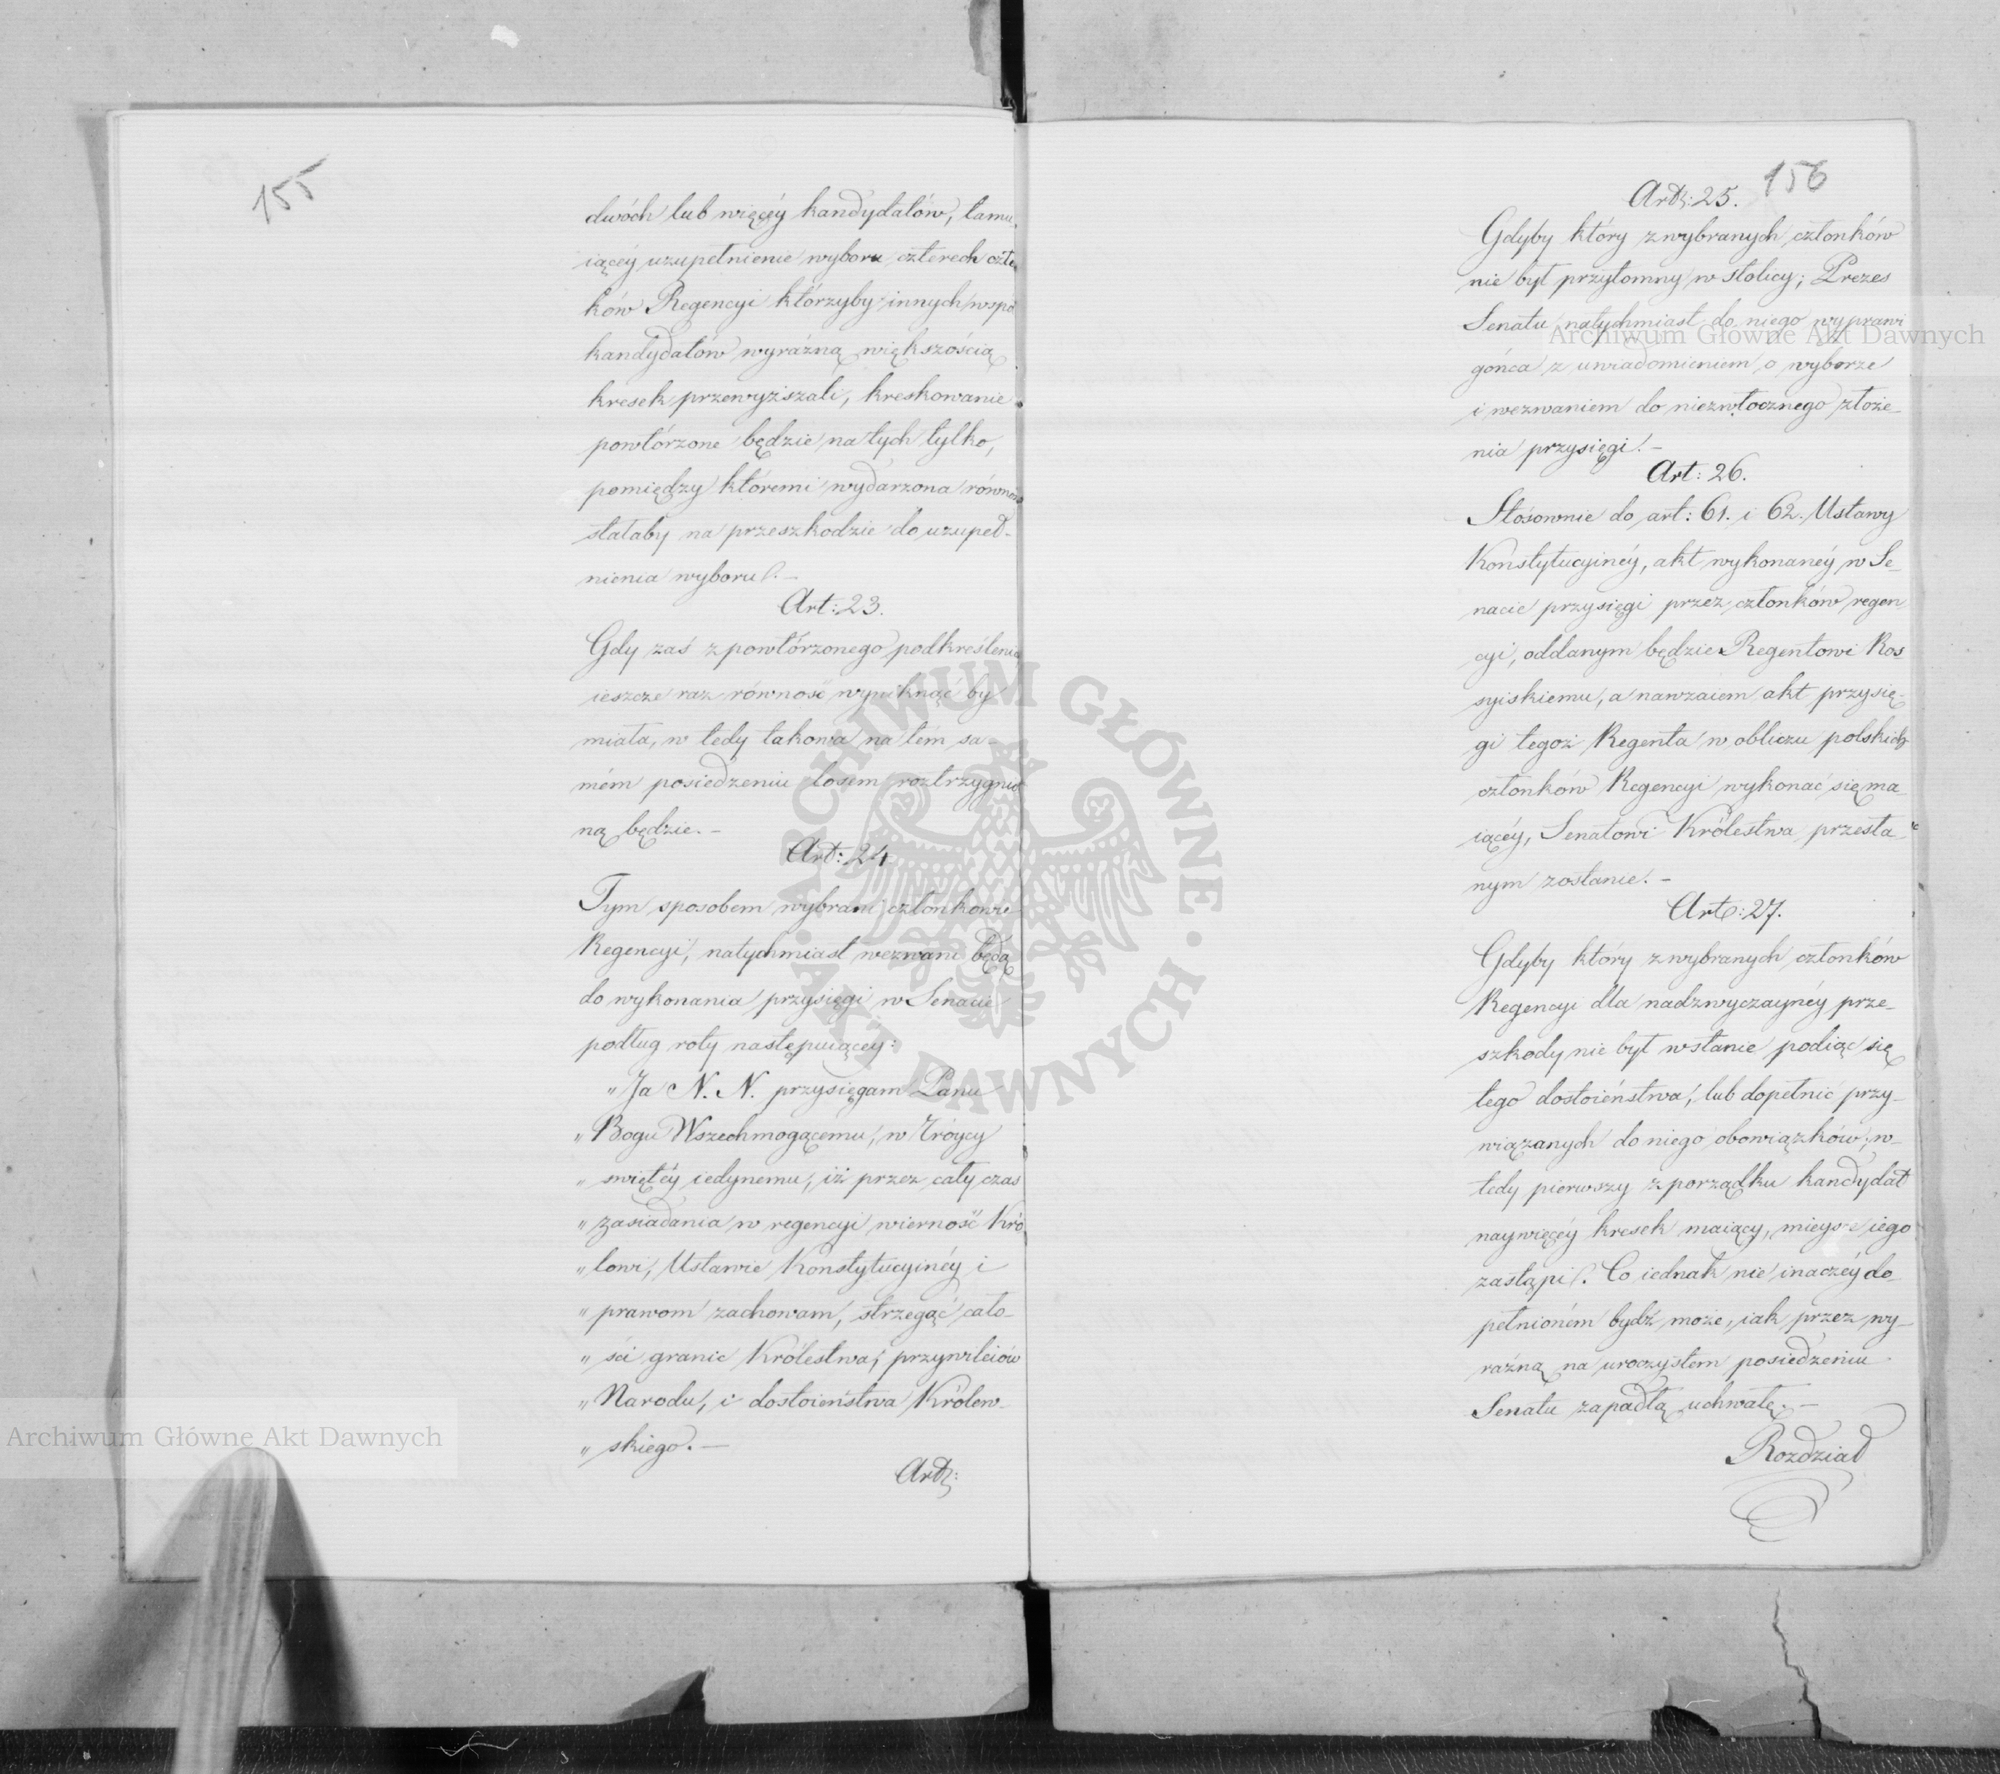 155
dwóch lub więcéy kandydatów, tamu
iącéy uzupełnienie wyboru czterech człon
ków Regencyi którzyby innych wspó
kandydatów wyraźną większością
kresek przewyższali, kreskowanie
powtórzone będzie na tych tylko,
pomiędzy któremi wydarzona równość
stałaby na przeszkodzie do uzupeł-
nienia wyboru. –
Art: 23.
Gdy zaś z powtórzonego podkreślenia
ieszcze raz równość wyniknąć by
miała, w tedy takowa na tém sa-
mém posiedzeniu losem roztrzygnio
ną będzie. –
Art: 24
Tym sposobem wybrani członkowie
Regencyi, natychmiast wezwani będą
do wykonania przysięgi w Senacie
podług roty następuiącéy:
„ Ja N. N. przysięgam Panu
„ Bogu Wszechmogącemu, w Tróycy
„ swiętéy iedynemu, iż przez cały czas
„ zasiadania w regencyi wierność Kró
„ lowi, Ustawie Konstytucyinéy i
„ prawom zachowam, strzegąć cało-
„ ści granic Królestwa, przywileiów
„ Narodu, i dostoieństwa Królew-
„ skiego. –
Art:
156
Art: 25.
Gdyby który z wybranych członków
nie był przytomny w stolicy; Prezes
Senatu natychmiast do niego wyprawi
gońca z uwiadomieniem o wyborze
i wezwaniem do niezwłocznego złoże-
nia przysięgi. –
Art: 26.
Stosownie do art: 61. i 62. Ustawy
Konstytucyinéy, akt wykonanéy w Se-
nacie przysięgi przez członków regen
cyi, oddanym będzie Regentowi Ros
syiskiemu, a nawzaiem akt przysię-
gi tegoż Regenta w obliczu polskich
członków Regencyi wykonać się ma-
iącéy, Senatowi Królestwa przesła-
nym zostanie. –
Art: 27.
Gdyby który z wybranych członków
Regencyi dla nadzwyczaynéy prze-
szkody nie był wstanie podiąć się
tego dostoieństwa, lub dopełnić przy-
wiązanych do niego obowiązków; w-
tedy pierwszy z porządku kandydat
naywięcéy kresek maiący, mieysce iego
zastąpi. Co iednak nie inaczéy do-
pełnioném bydź może, iak przez wy-
raźną na uroczystem posiedzeniu
Senatu zapadłą uchwałę. –
Rozdział
Archiwum Główne Akt Dawnych
Archiwum Główne Akt Dawnych
ARCHIWUM GŁÓWNE · AKT DAWNYCH ·